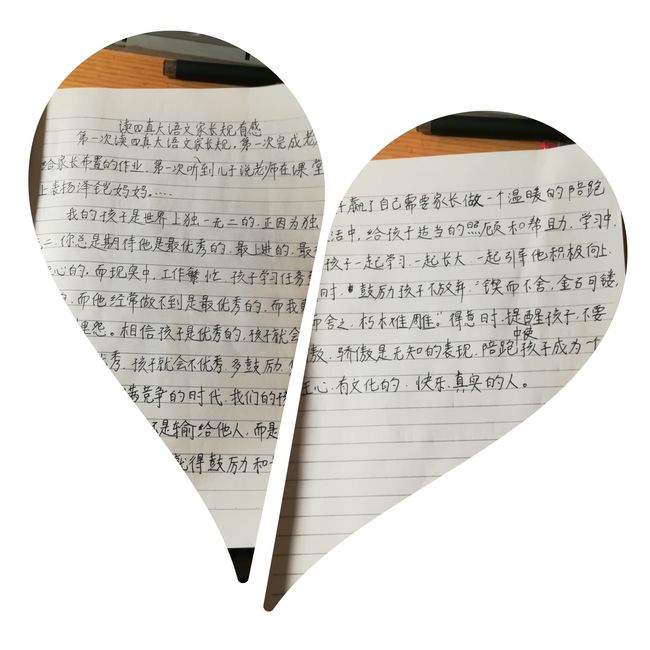 读四真大语文家长规有感
第一次读四真大语文家长规,第一次完成老
给家长布置的作业.第一次听到儿子说老师在课堂
上表扬泽铠妈妈.....
我的孩子是世界上独一无二的.正因为独
二.你总是期待他是最优秀的.最上进的.最
心的.而现实中.工作繁忙.孩子学习任务
的.而他经常做不到是最优秀的.而我
埋怨。相信孩子是优秀的.孩子就会
优秀.孩子就会不优秀.多鼓励.
竞争的时代.我们的孩
是输给他人.而是
就得鼓励和
子赢了自己需要家长做一个温暖的陪跑
活中.给孩子适当的照顾和帮助.学习中.
孩子一起学习.一起长大.一起引导他积极向上.
时.鼓励孩子不放弃."锲而不舍,金石可镂,
而舍之,朽木难雕。"得意时.提醒孩子.不要
傲.骄傲是无知的表现.陪跑中使孩子成为一个
心.有文化的.快乐.真实的人。